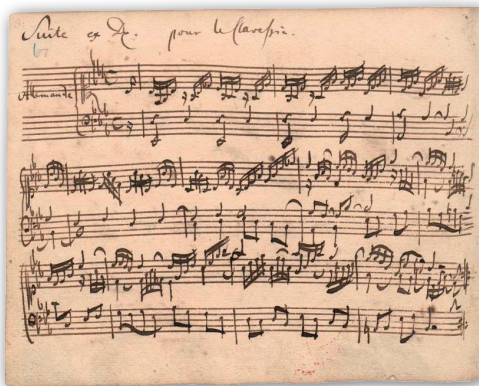 Suite ex pour le Clavessin.
Allemande